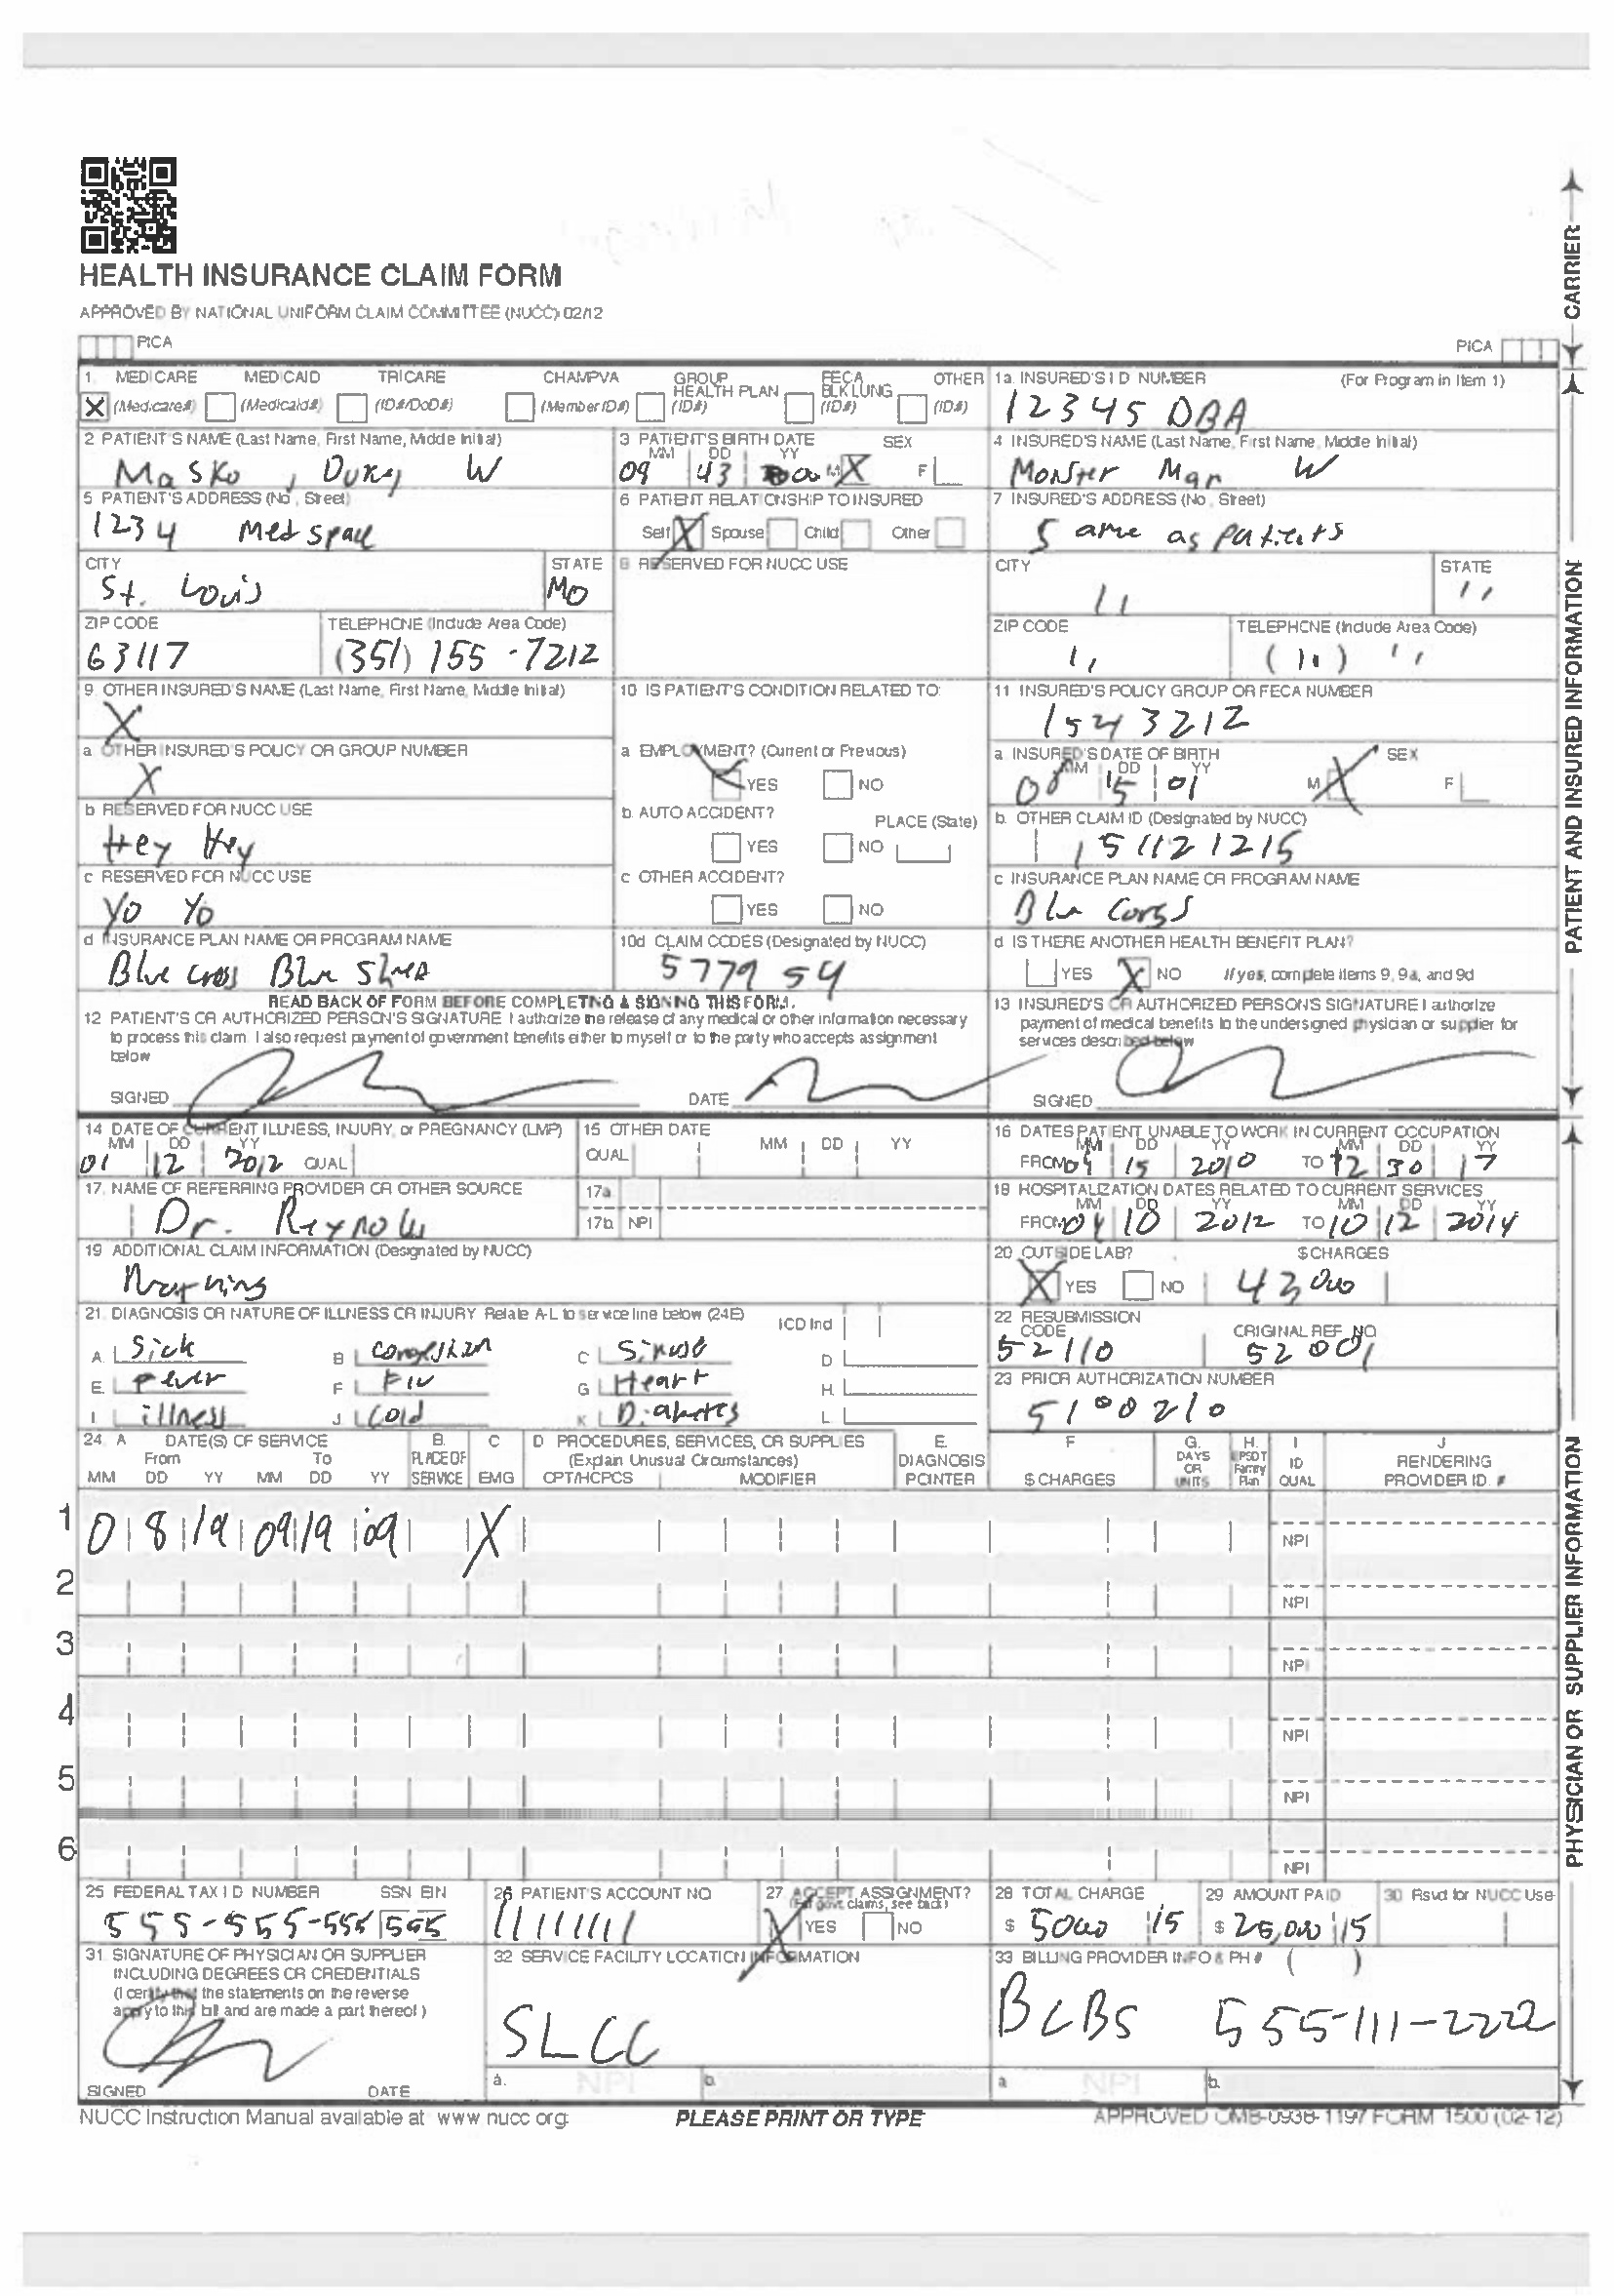 HEALTH INSURANCE CLAIM FORM
APPROVED BY NATIONAL UNIFORM CLAIM COMMITTEE (NUCC) 02/12
PICA PICA
1. MEDICARE MEDICAID TRICARE CHAMPVA GROUP HEALTH PLAN FECA BLK LUNG OTHER
X (Medicare#) (Medicaid#) (ID#/DoD#) (Member ID#) (ID#) (ID#) (ID#)
1a. INSURED'S I D NUMBER (For Program in Item 1)
12345 DBA
2 PATIENT'S NAME (Last Name, First Name, Middle Initial)
Masko, Duky W
3 PATIENT'S BIRTH DATE SEX
MM DD YY
09 43 M X F
4 INSURED'S NAME (Last Name, First Name, Middle Initial)
Monster Man W
5 PATIENT'S ADDRESS (No, Street)
1234 Med space
6 PATIENT RELATIONSHIP TO INSURED
Self X Spouse Child Other
7 INSURED'S ADDRESS (No, Street)
Same as patients
CITY STATE
St. Louis MO
8 RESERVED FOR NUCC USE
CITY STATE
'' ''
ZIP CODE TELEPHONE (Include Area Code)
63117 (351) 155-7212
ZIP CODE TELEPHONE (Include Area Code)
'' ('') ''
9 OTHER INSURED'S NAME (Last Name, First Name, Middle Initial)
X
10 IS PATIENT'S CONDITION RELATED TO:
11 INSURED'S POLICY GROUP OR FECA NUMBER
1543212
a OTHER INSURED'S POLICY OR GROUP NUMBER
X
a EMPLOYMENT? (Current or Previous)
YES NO
a INSURED'S DATE OF BIRTH SEX
MM DD YY
08 15 01 M X F
b RESERVED FOR NUCC USE
Hey Hey
b. AUTO ACCIDENT? PLACE (State)
YES NO
b. OTHER CLAIM ID (Designated by NUCC)
151121215
c RESERVED FOR NUCC USE
Yo Yo
c OTHER ACCIDENT?
YES NO
c INSURANCE PLAN NAME OR PROGRAM NAME
d INSURANCE PLAN NAME OR PROGRAM NAME
Blue cross Blue
10d CLAIM CODES (Designated by NUCC)
577954
d IS THERE ANOTHER HEALTH BENEFIT PLAN?
YES X NO If yes, complete items 9, 9a, and 9d
READ BACK OF FORM BEFORE COMPLETING & SIGNING THIS FORM.
12 PATIENT'S OR AUTHORIZED PERSON'S SIGNATURE I authorize the release of any medical or other information necessary
to process this claim. I also request payment of government benefits either to myself or to the party who accepts assignment
below
SIGNED DATE
13 INSURED'S OR AUTHORIZED PERSON'S SIGNATURE I authorize
payment of medical benefits to the undersigned physician or supplier for
services described below
SIGNED
14 DATE OF CURRENT ILLNESS, INJURY, or PREGNANCY (LMP)
MM DD YY
01 12 2012 QUAL
15 OTHER DATE
QUAL MM DD YY
16 DATES PATIENT UNABLE TO WORK IN CURRENT OCCUPATION
MM DD YY MM DD YY
FROM 04 15 2010 TO 12 30 17
17. NAME OF REFERRING PROVIDER OR OTHER SOURCE
Dr. Reynolds
17a
17b NPI
18 HOSPITALIZATION DATES RELATED TO CURRENT SERVICES
MM DD YY MM DD YY
FROM 04 10 2012 TO 10 12 2014
19 ADDITIONAL CLAIM INFORMATION (Designated by NUCC)
20 OUTSIDE LAB? $ CHARGES
X YES NO 43,000
21. DIAGNOSIS OR NATURE OF ILLNESS OR INJURY Relate A-L to service line below (24E) ICD Ind
A. Sick B congestion C Sinus D
E. Fever F Flu G Heart H.
I. illness J Cold K Diabetes L
22 RESUBMISSION CODE ORIGINAL REF. NO
52110 52001
23 PRIOR AUTHORIZATION NUMBER
5100210
24. A DATE(S) OF SERVICE B. C D PROCEDURES, SERVICES, OR SUPPLIES E. F G. H. I J
From To PLACE OF (Explain Unusual Circumstances) DIAGNOSIS DAYS OR EPSDT Family ID RENDERING
MM DD YY MM DD YY SERVICE EMG CPT/HCPCS MODIFIER POINTER $ CHARGES UNITS Plan QUAL PROVIDER ID. #
1 0 8 19 09 19 09 X NPI
2 NPI
3 NPI
4 NPI
5 NPI
6 NPI
25 FEDERAL TAX I D NUMBER SSN EIN
555-555-555 555
26 PATIENT'S ACCOUNT NO
11111111
27 ACCEPT ASSIGNMENT?
(For govt. claims, see back)
X YES NO
28 TOTAL CHARGE
$ 5000 15
29 AMOUNT PAID
$ 25,000 15
30 Rsvd for NUCC Use
31 SIGNATURE OF PHYSICIAN OR SUPPLIER
INCLUDING DEGREES OR CREDENTIALS
(I certify that the statements on the reverse
apply to this bill and are made a part thereof)
SIGNED DATE
32 SERVICE FACILITY LOCATION INFORMATION
SLCC
a. NPI b.
33 BILLING PROVIDER INFO & PH # ( )
BCBS 555-111-2222
a NPI b.
NUCC Instruction Manual available at www nucc org PLEASE PRINT OR TYPE APPROVED OMB-0938-1197 FORM 1500 (02-12)
CARRIER
PATIENT AND INSURED INFORMATION
PHYSICIAN OR SUPPLIER INFORMATION